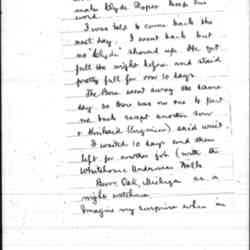 make Clyde Roper keep his
word.
I was told to come back the
next day. I went back but
no "Clyde" showed up. He got
full the night before and staid
pretty full for over 10 days.
The Boss went away the same
day so there was no one to put
me back except another
& (Engineer) said wait.
I waited 10 days and then
left for another job (with the
Whitehouse Underwear Mills
Burr Oak, Michigan as a
night watchman.
Imagine my surprise when in